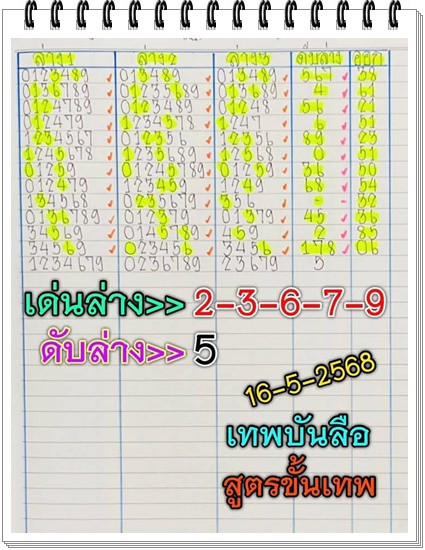 ล่าง1 ล่าง2 ล่าง3 ดับล่าง ออก
0123489 ✓ 013489 ✓ 013489 ✓ 567 ✓ 58
0136789 ✓ 01235689 ✓ 013689 ✓ 4 ✓ 61
0124789 ✓ 0123489 ✓ 01248 ✓ 56 ✓ 21
012479 ✓ 1234578 ✓ 1247 ✓ 6 ✓ 51
1234567 ✓ 012356 ✓ 12356 ✓ 89 ✓ 23
1245678 ✓ 1235689 ✓ 12568 ✓ 0 ✓ 51
01259 ✓ 01245789 ✓ 01259 ✓ 36 ✓ 50
012479 ✓ 123459 ✓ 1249 ✓ 68 ✓ 54
0136789 ✓ 012379 ✓ 01379 ✓ 45 ✓ 36
34569 ✓ 0145789 ✓ 459 ✓ 2 ✓ 85
34569 ✓ 023456 ✓ 3456 ✓ 178 ✓ 06
1234679 0236789 23679 5
เด่นล่าง>> 2-3-6-7-9
ดับล่าง>> 5
16-5-2568
เทพบันลือ
สูตรขั้นเทพ